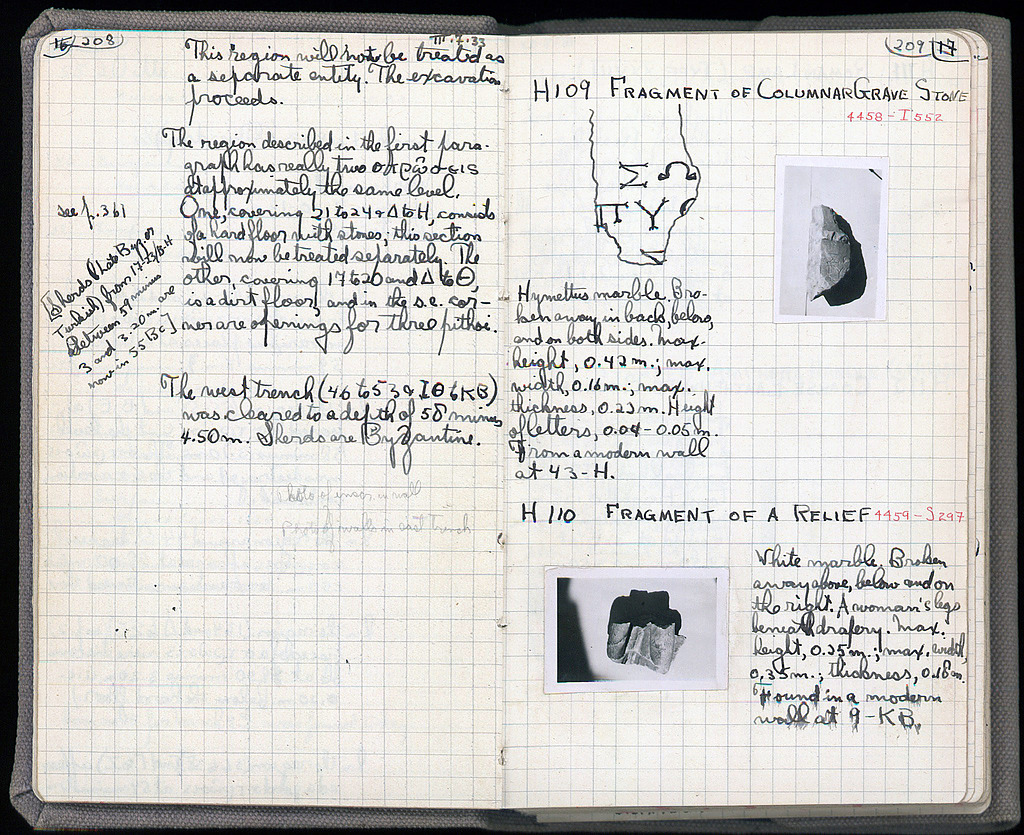 16 208
III.7.33
This region will now be treated as
a separate entity. The excavation
proceeds.
The region described in the first para-
graph has really two στρώσεις
at approximately the same level.
One, covering 21 to 24 & Δ to H, consists
of a hard floor with stones; this section
will now be treated separately. The
other, covering 17 to 20 and Δ to Θ,
is a dirt floor, and in the s.e. cor-
ner are openings for three pithoi.
see p. 361
[Sherds Late Byz. or
Turkish, from 17-23/Δ-H
between 59 minus
3 and 3.20 m. are
now in 55 BC]
The west trench (46 to 53 & IΘ to KB)
was cleared to a depth of 58 minus
4.50 m. Sherds are Byzantine.
photo of in wall
photo of walls in east trench
209 17
H 109 FRAGMENT OF COLUMNAR GRAVE STONE
4458 - I 552
Σ Ω
Π Υ
Hymettus marble. Bro-
ken away in back, below,
and on both sides. Max.
height, 0.42 m.; max.
width, 0.16 m.; max.
thickness, 0.23 m. Height
of letters, 0.04 - 0.05 m.
From a modern wall
at 43 - H.
H 110 FRAGMENT OF A RELIEF 4459 - S 297
White marble. Broken
away above, below and on
the right. A woman's legs
beneath drapery. Max.
height, 0.25 m.; max. width,
0.35 m.; thickness, 0.18 m.
Found in a modern
wall at 9 - KB.